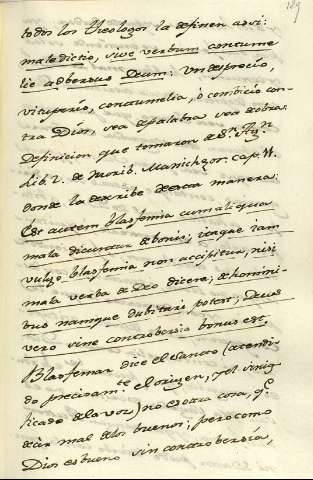 189
todos los Theologos la definen assi:
maledictio, sive verbum contume
lię adversus Deum: Un desprecio,
vituperio, contumelia, ò combicio con-
tra Dios, sea de palabra sea de obra.
Definicion que tomaron de Sn Agn
lib. 2. de Morib. Manicheor. cap. 11.
donde la describe de esta manera:
Est autem blasfemia cum aliqua
mala dicuntur de bonis; itaque iam
vulgo blasfemia non accipitur, nisi
mala verba de Deo dicere; de homini-
bus namque dubitari potest; Deus
vero sine controbersia bonus est,
Blasfemar dice el Santo (atendi-
do precisamte el origen, y el signi-
ficado de la voz) no es otra cosa, q.e
decir mal de los buenos; pero como
Dios es bueno sin controbersia,